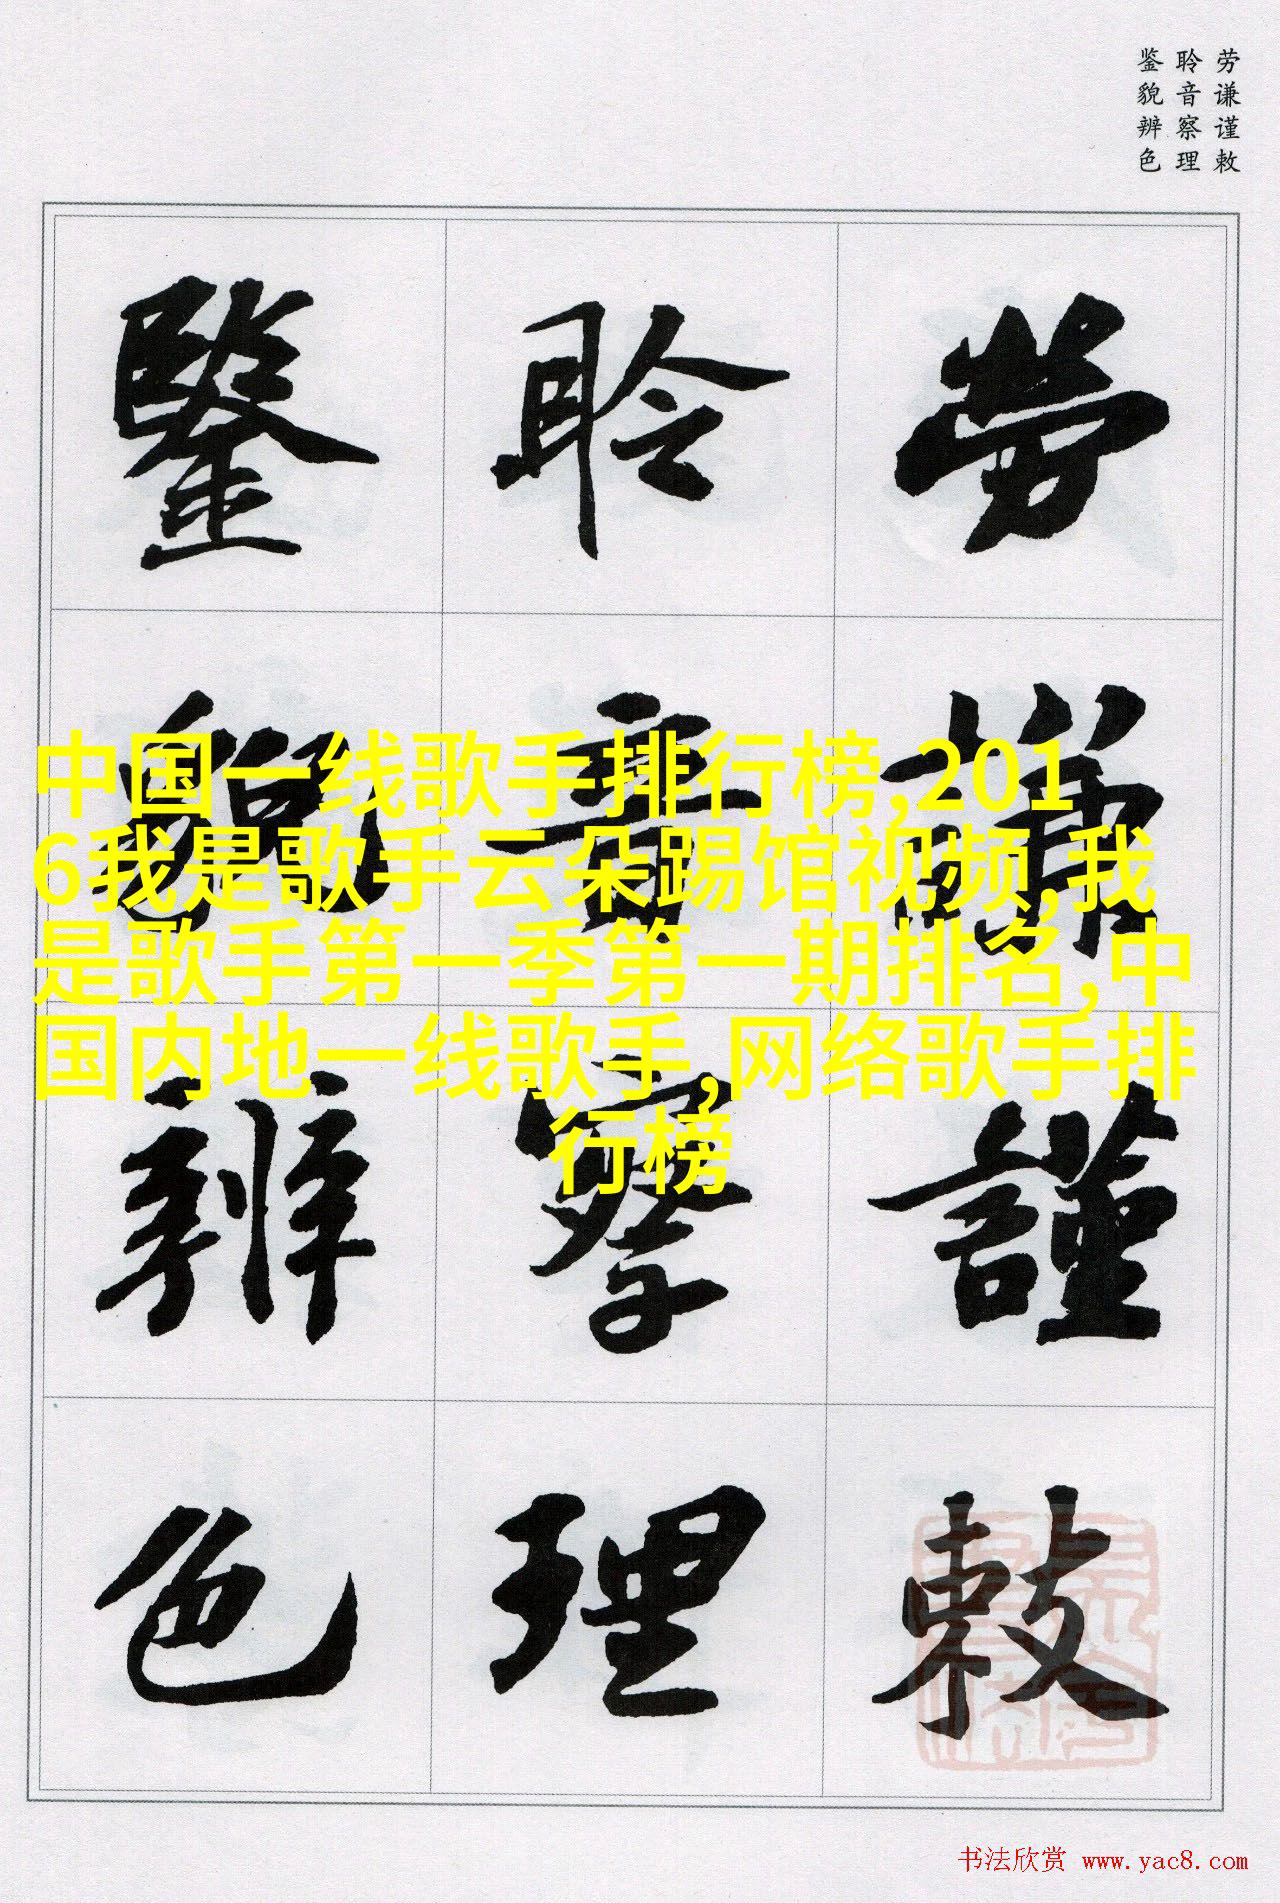 劳谦谨敕
聆音察理
鉴貌辨色
劳謙謹敕
聆音察理
鑒貌辨色
中国一线歌手排行榜,201
6我是歌手云朵踢馆视频,我
是歌手第一季第一期排名,中
国内地一线歌手,网络歌手排
行榜
书法欣赏 www.yac8.com